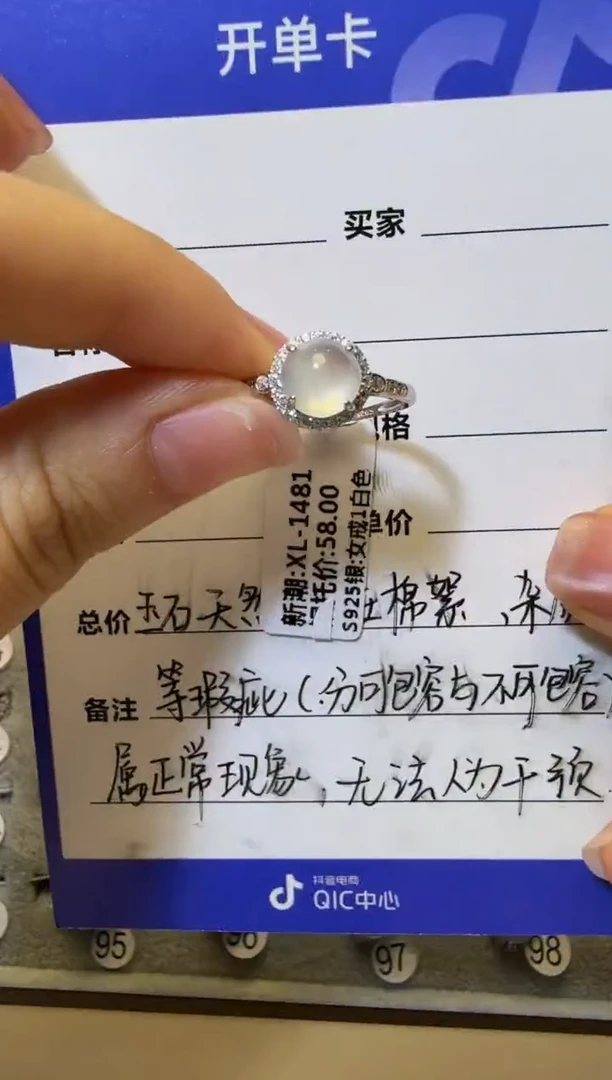 开单卡
买家
格
单价
新潮:XL-1481
托价:58.00
S925银:女戒1白色
总价 玉石天然 棉絮、杂
备注 等瑕疵(分可包容与不可包容)
属正常现象,无法人为干预
抖音电商
QIC中心
95
96
97
98